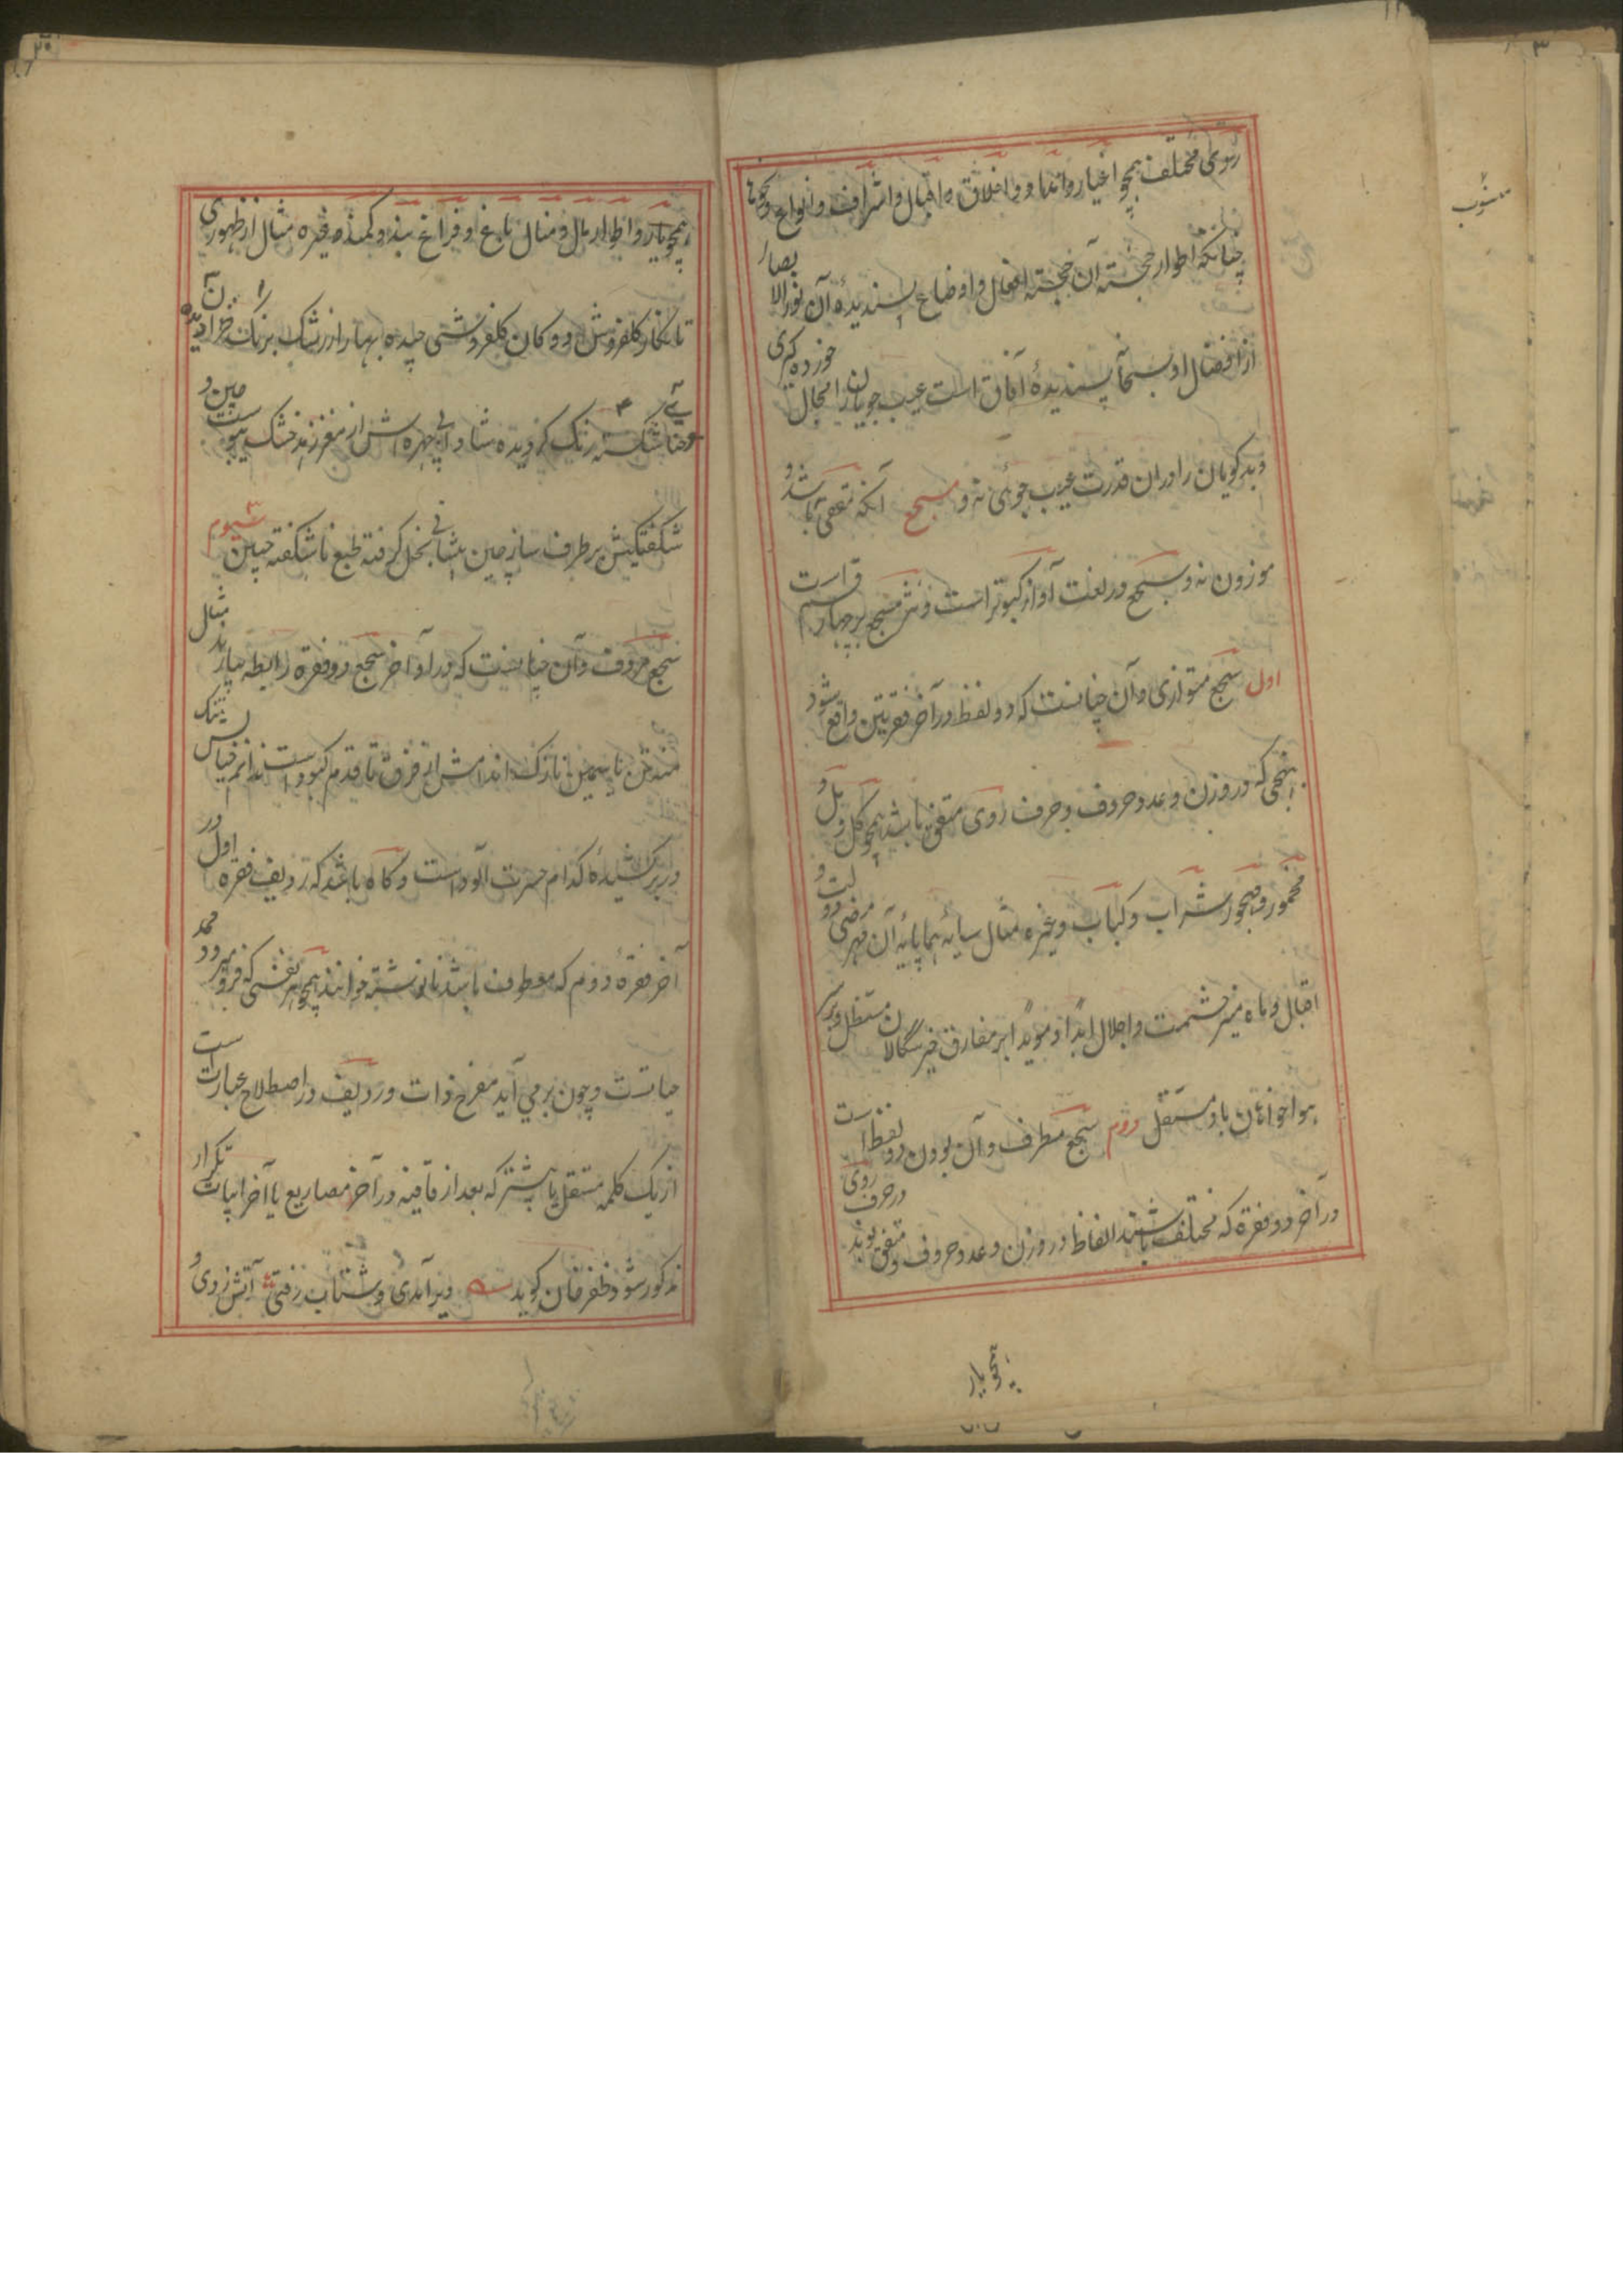 روی مختلف همچو اخیار و انداد و اخلاق و اقبال و اشراف و انواع و
چنانکه اطوار خجسته آن خجسته افعال و اوضاع پسندیدهٔ آن نور الابصار
از افضال او سبحانه پسندیدهٔ آفاق است عیب جویان را مجال خورده گیری
و بدگویان را در ان قدرت عیب جوئی نه و مسجع آنکه مقفی باشد و
موزون نه و سجع در لغت آواز کبوتر است و نثر مسجع بر چهار قسم است
اول سجع متوازی و آن چنانست که دو لفظ در آخر فقرتین واقع شود
بنهجی که در وزن و عدد حروف و حرف روی متفق باشد همچو گل و مل و
مخمور و مهجور شراب و کباب و غیره مثال سایهٔ هما پایهٔ آن مهر
اقبال و ماه منیر حشمت و اجلال ابدا و مویدا بر مفارق خیر سگالان مستظل و
هواخوانان باد مستقل دوم سجع مطرف و آن بودن دو لفظ است
در آخر دو فقره که مختلف باشند الفاظ در وزن و عدد حروف و در حرف روی متفق بوند
همچو یار
همچو یار و اطوار مال و منال باغ و فراغ بند و کمند و غیره مثال از ظهوری
تا نگار گلفروش او دکان گلفروشی چیده بهار از رشک برنگ خزان
شکسته رنگ گردیده شادابی چهره اش از مغز زمرد خشک
شگفتگیش بر طرف ساز چین پیشانی گرفته طبع ناشگفته جبین سیوم
سجع حروف و آن چنانست که در اواخر سجع دو فقره رابطه بیارند مثال
تن یاسمین نازک اندامش از فرق تا قدم کبود است ندانم
در بر کشیدهٔ کدام حسرت آلود است و گاه باشد که ردیف فقره اول در
آخر فقرهٔ دوم که معطوف باشد نانوشته خوانند همچو هر نفسی که فرو میرود ممد
حیاتست و چون بر می آید مفرح ذات و ردیف در اصطلاح عبارت است
از یک کلمه مستقل یا بیشتر که بعد از قافیه در آخر مصاریع یا آخر ابیات تکرار
مذکور شود ظفر خان گوید دیر آمدی و شتاب رفتی آتش زدی و
منسوب